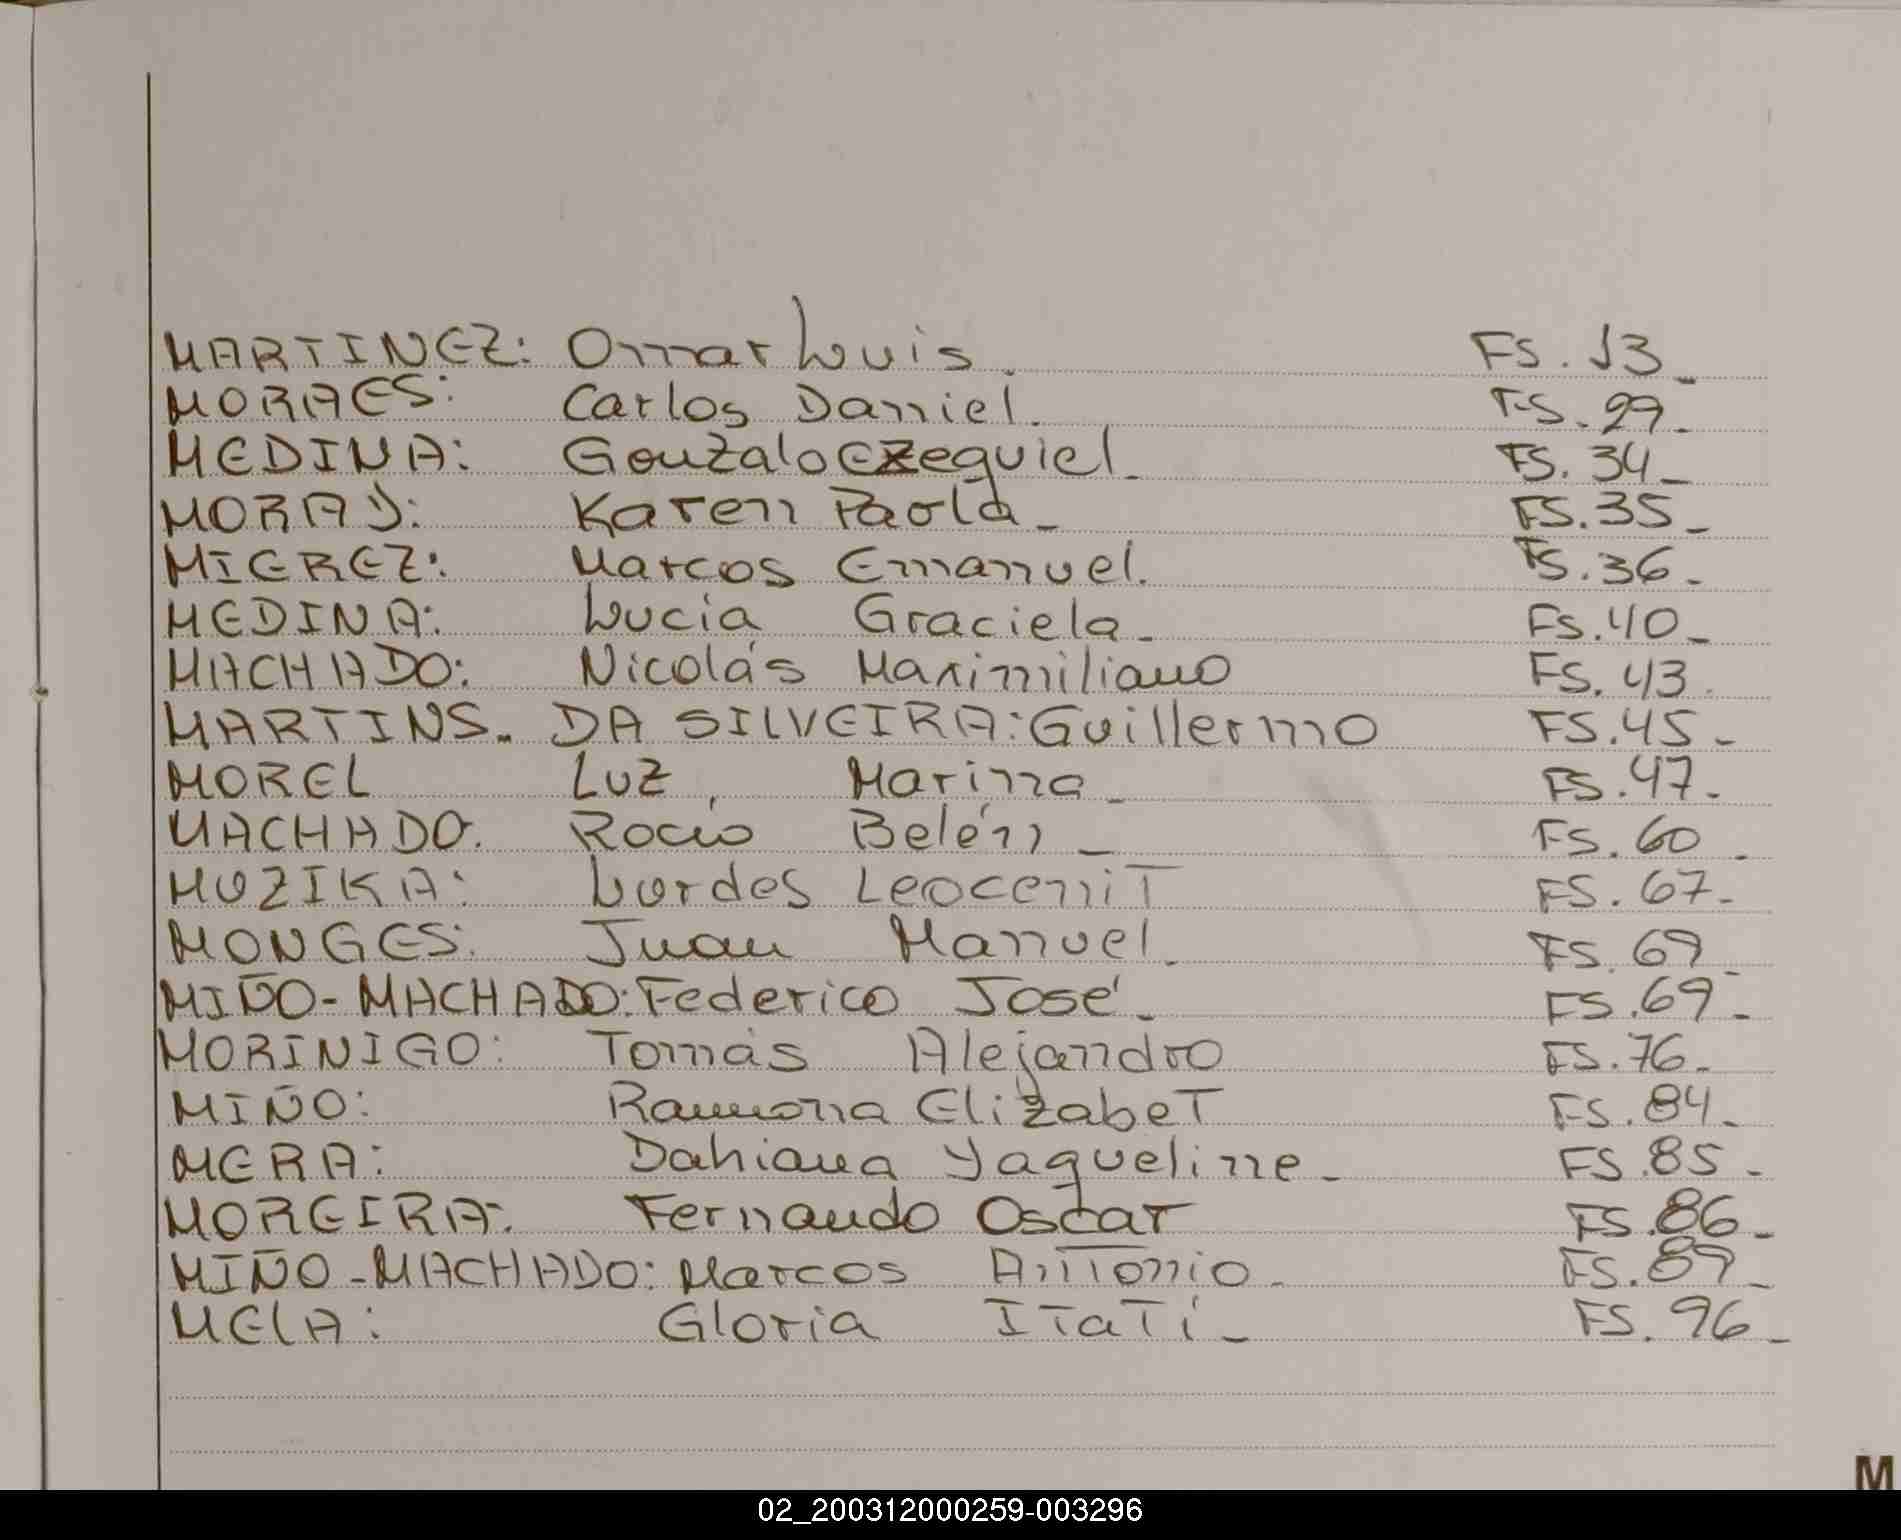 MARTINEZ: Omar Luis. FS. 13_
MORAES: Carlos Daniel. FS. 29_
MEDINA: Gonzalo Ezequiel_ FS. 34_
Karen Paola_ FS. 35_
MIEREZ: Marcos Emanuel. FS. 36_
MEDINA: Lucia Graciela_ FS. 40_
MACHADO: Nicolás Maximiliano FS. 43.
MARTINS_ DA SILVEIRA: Guillermo FS. 45_
MOREL Luz, Marina_ FS. 47_
MACHADO. Rocio Belén_ FS. 60_
MUZIKA: Lurdes LeoceniT FS. 67_
MONGES: Juan Manuel_ FS. 69_
MIÑO-MACHADO: Federico José_ FS. 69_
MORINIGO: Tomás Alejandro FS. 76_
MIÑO: Ramona ElizabeT FS. 84_
MERA: Dahiana Yaqueline_ FS. 85_
MOREIRA: Fernando Oscar FS. 86_
MIÑO-MACHADO: Marcos Antonio_ FS. 89_
MELA: Gloria ITaTí_ FS. 96_
M
02_200312000259-003296